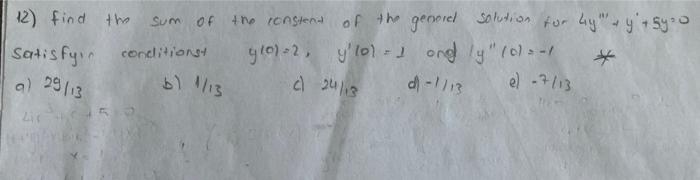 12) find the sum of the constend of the generel solution for 4y''' + y' + 5y = 0
Satisfyin conditions y(0) = 2, y'(0) = 1 and y''(0) = -1
a) 29/13 b) 1/13 c) 24/13 d) -1/13 e) -7/13